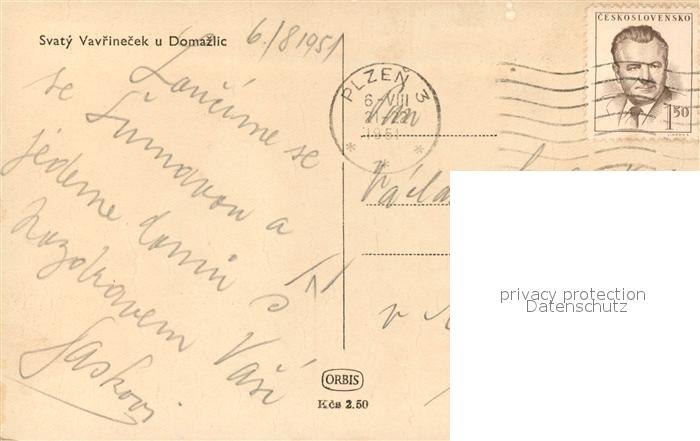 Svatý Vavřineček u Domažlic
6./8 1951
Loučíme se
se Šumavou a
jedeme domů s
pozdravem Vaši
Laskovi.
ČESKOSLOVENSKO
1 50
PLZEŇ 3
6.-VIII
1951
Václav
v
privacy protection
Datenschutz
ORBIS
Kčs 2.50